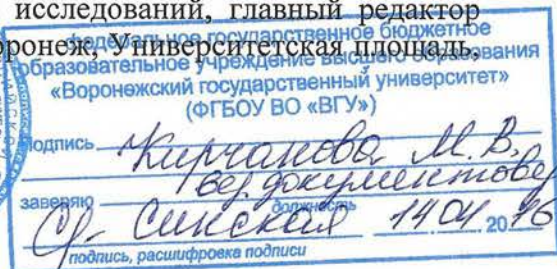 исследований, главный редактор
оронеж, Университетская площадь,
федеральное государственное бюджетное
образовательное учреждение высшего образования
«Воронежский государственный университет»
(ФГБОУ ВО «ВГУ»)
Подпись Кирчанова М. В.
заверяю вед. документовед
должность
Синская 14 04 20 16
подпись, расшифровка подписи